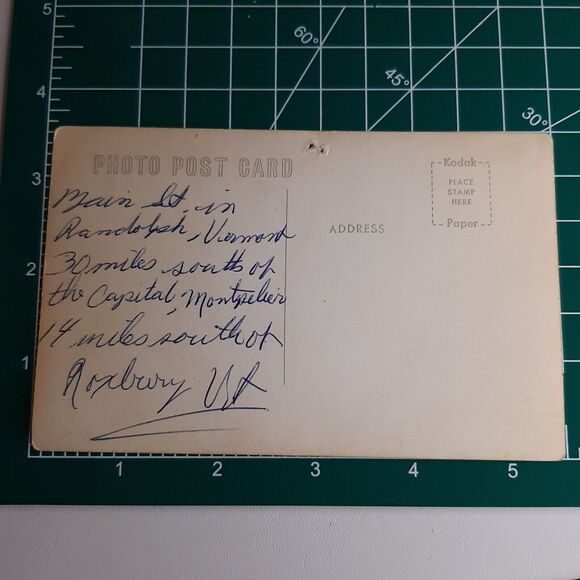 5
4
3
2
1
60°
45°
30°
PHOTO POST CARD
Main St. in
Randolph, Vermont
30 miles south of
the Capital, Montpelier
14 miles south of
Roxbury Vt
ADDRESS
Kodak
PLACE
STAMP
HERE
Paper
1
2
3
4
5